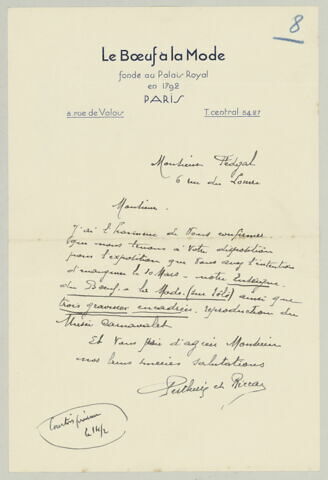 8
Le Bœuf à la Mode
fondé au Palais Royal
en 1792
PARIS
8 rue de Valois T. central 54.27
Monsieur
6 rue du Louvre
Monsieur
J'ai l'honneur de vous confirmer
que nous tenons à votre disposition
pour l'exposition que vous avez l'intention
d'inaugurer le 10 Mars - notre Enseigne
du Bœuf à la Mode. (sur tôle) ainsi que
trois gravures encadrées. reproduction du
Musée Carnavalet
Et vous prie d'agréer Monsieur
nos bien sincères salutations
le 14/2